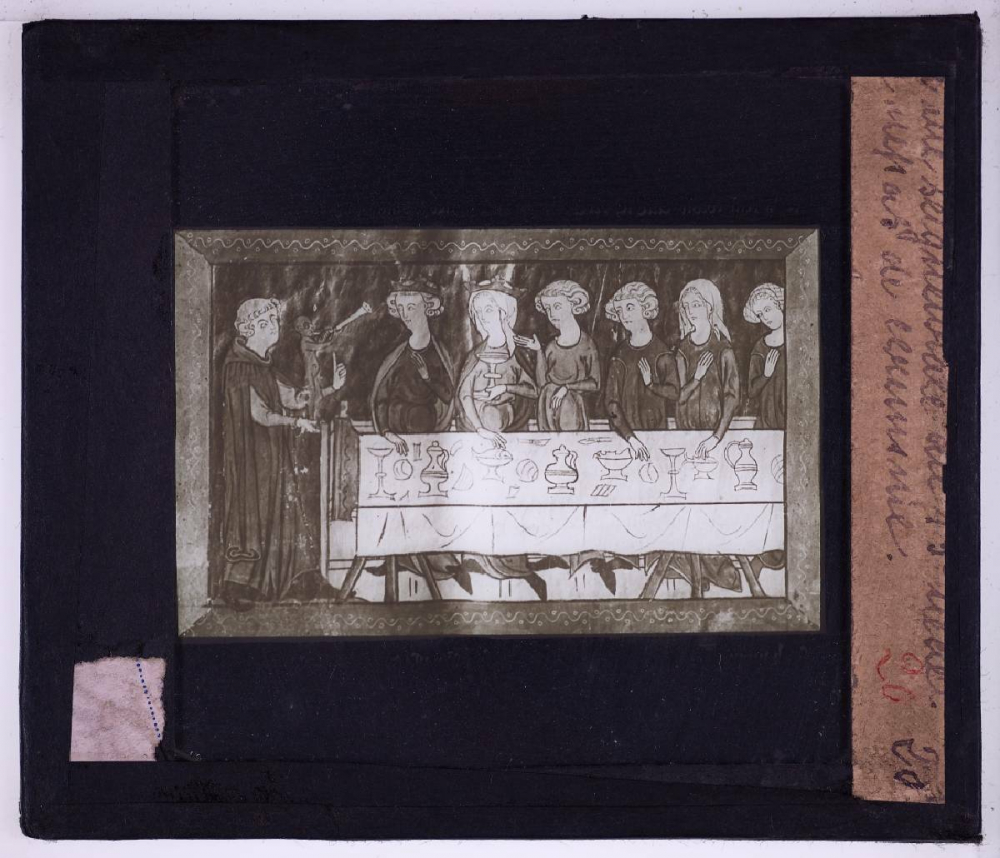 Vie seigneuriale au siècle.
repas de cérémonie.
20
20